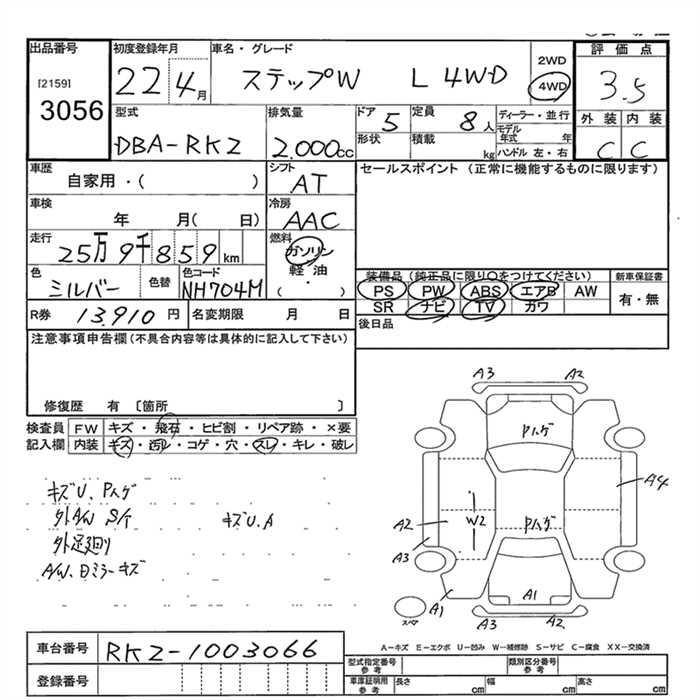 出品番号 初度登録年月 車名・グレード 評価点
[2159]
3056
22 4月 ステップW L 4WD
2WD
4WD
3.5
型式 排気量 ドア 定員 ディーラー・並行
DBA-RK2 2.000cc 5 8人
モデル年式 年
形状 積載 kg ハンドル 左・右
外装 内装
C C
車歴 シフト セールスポイント (正常に機能するものに限ります)
自家用・( ) AT
車検 冷房
年 月( 日) AAC
走行 燃料
25万9千859km ガソリン
軽油
・( )
色 色替 色コード
シルバー NH704M
装備品 (純正品に限り○をつけてください) 新車保証書
PS PW ABS エアB AW 有・無
SR ナビ TV カワ
R券 13,910円 名変期限 月 日
後日品
注意事項申告欄(不具合内容等は具体的に記入して下さい)
修復歴 有 〔箇所 〕
検査員 FW キズ・飛石・ヒビ割・リペア跡・×要
記入欄 内装 キズ・汚レ・コゲ・穴・スレ・キレ・破レ
キズU、Pハゲ
外A/W S/T キズU.A
外足廻り
A/W、ミラーキズ
A3 A2
Pハゲ
A4
A2 W2 Pハゲ
A3
A1 A1
スペア A3 A2
A-キズ E-エクボ U-凹み W-補修跡 S-サビ C-腐食 XX-交換済
車台番号 RK2-1003066
登録番号
型式指定番号 参考 類別区分番号 参考
車庫証明用 参考 長さ cm 幅 cm 高さ cm